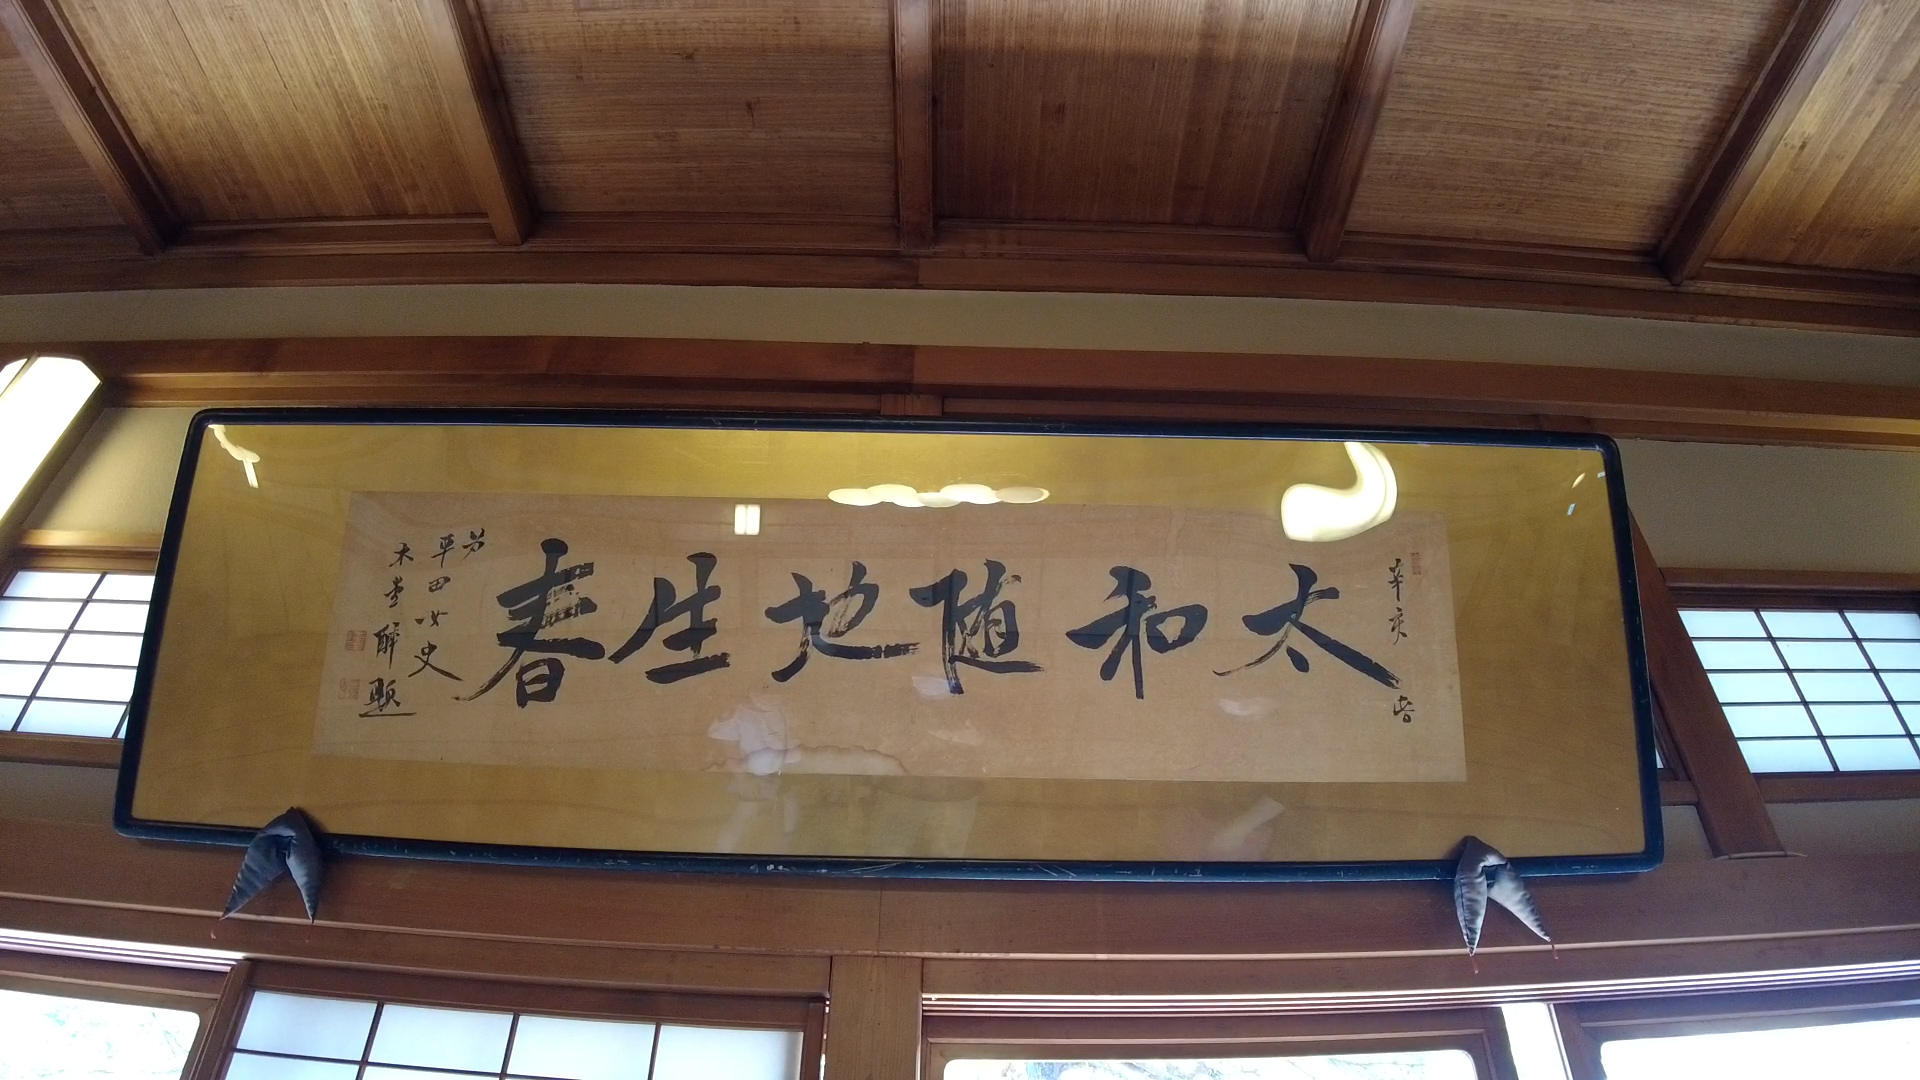 辛亥春
太和随地生春
為
平田女史
木堂酔題